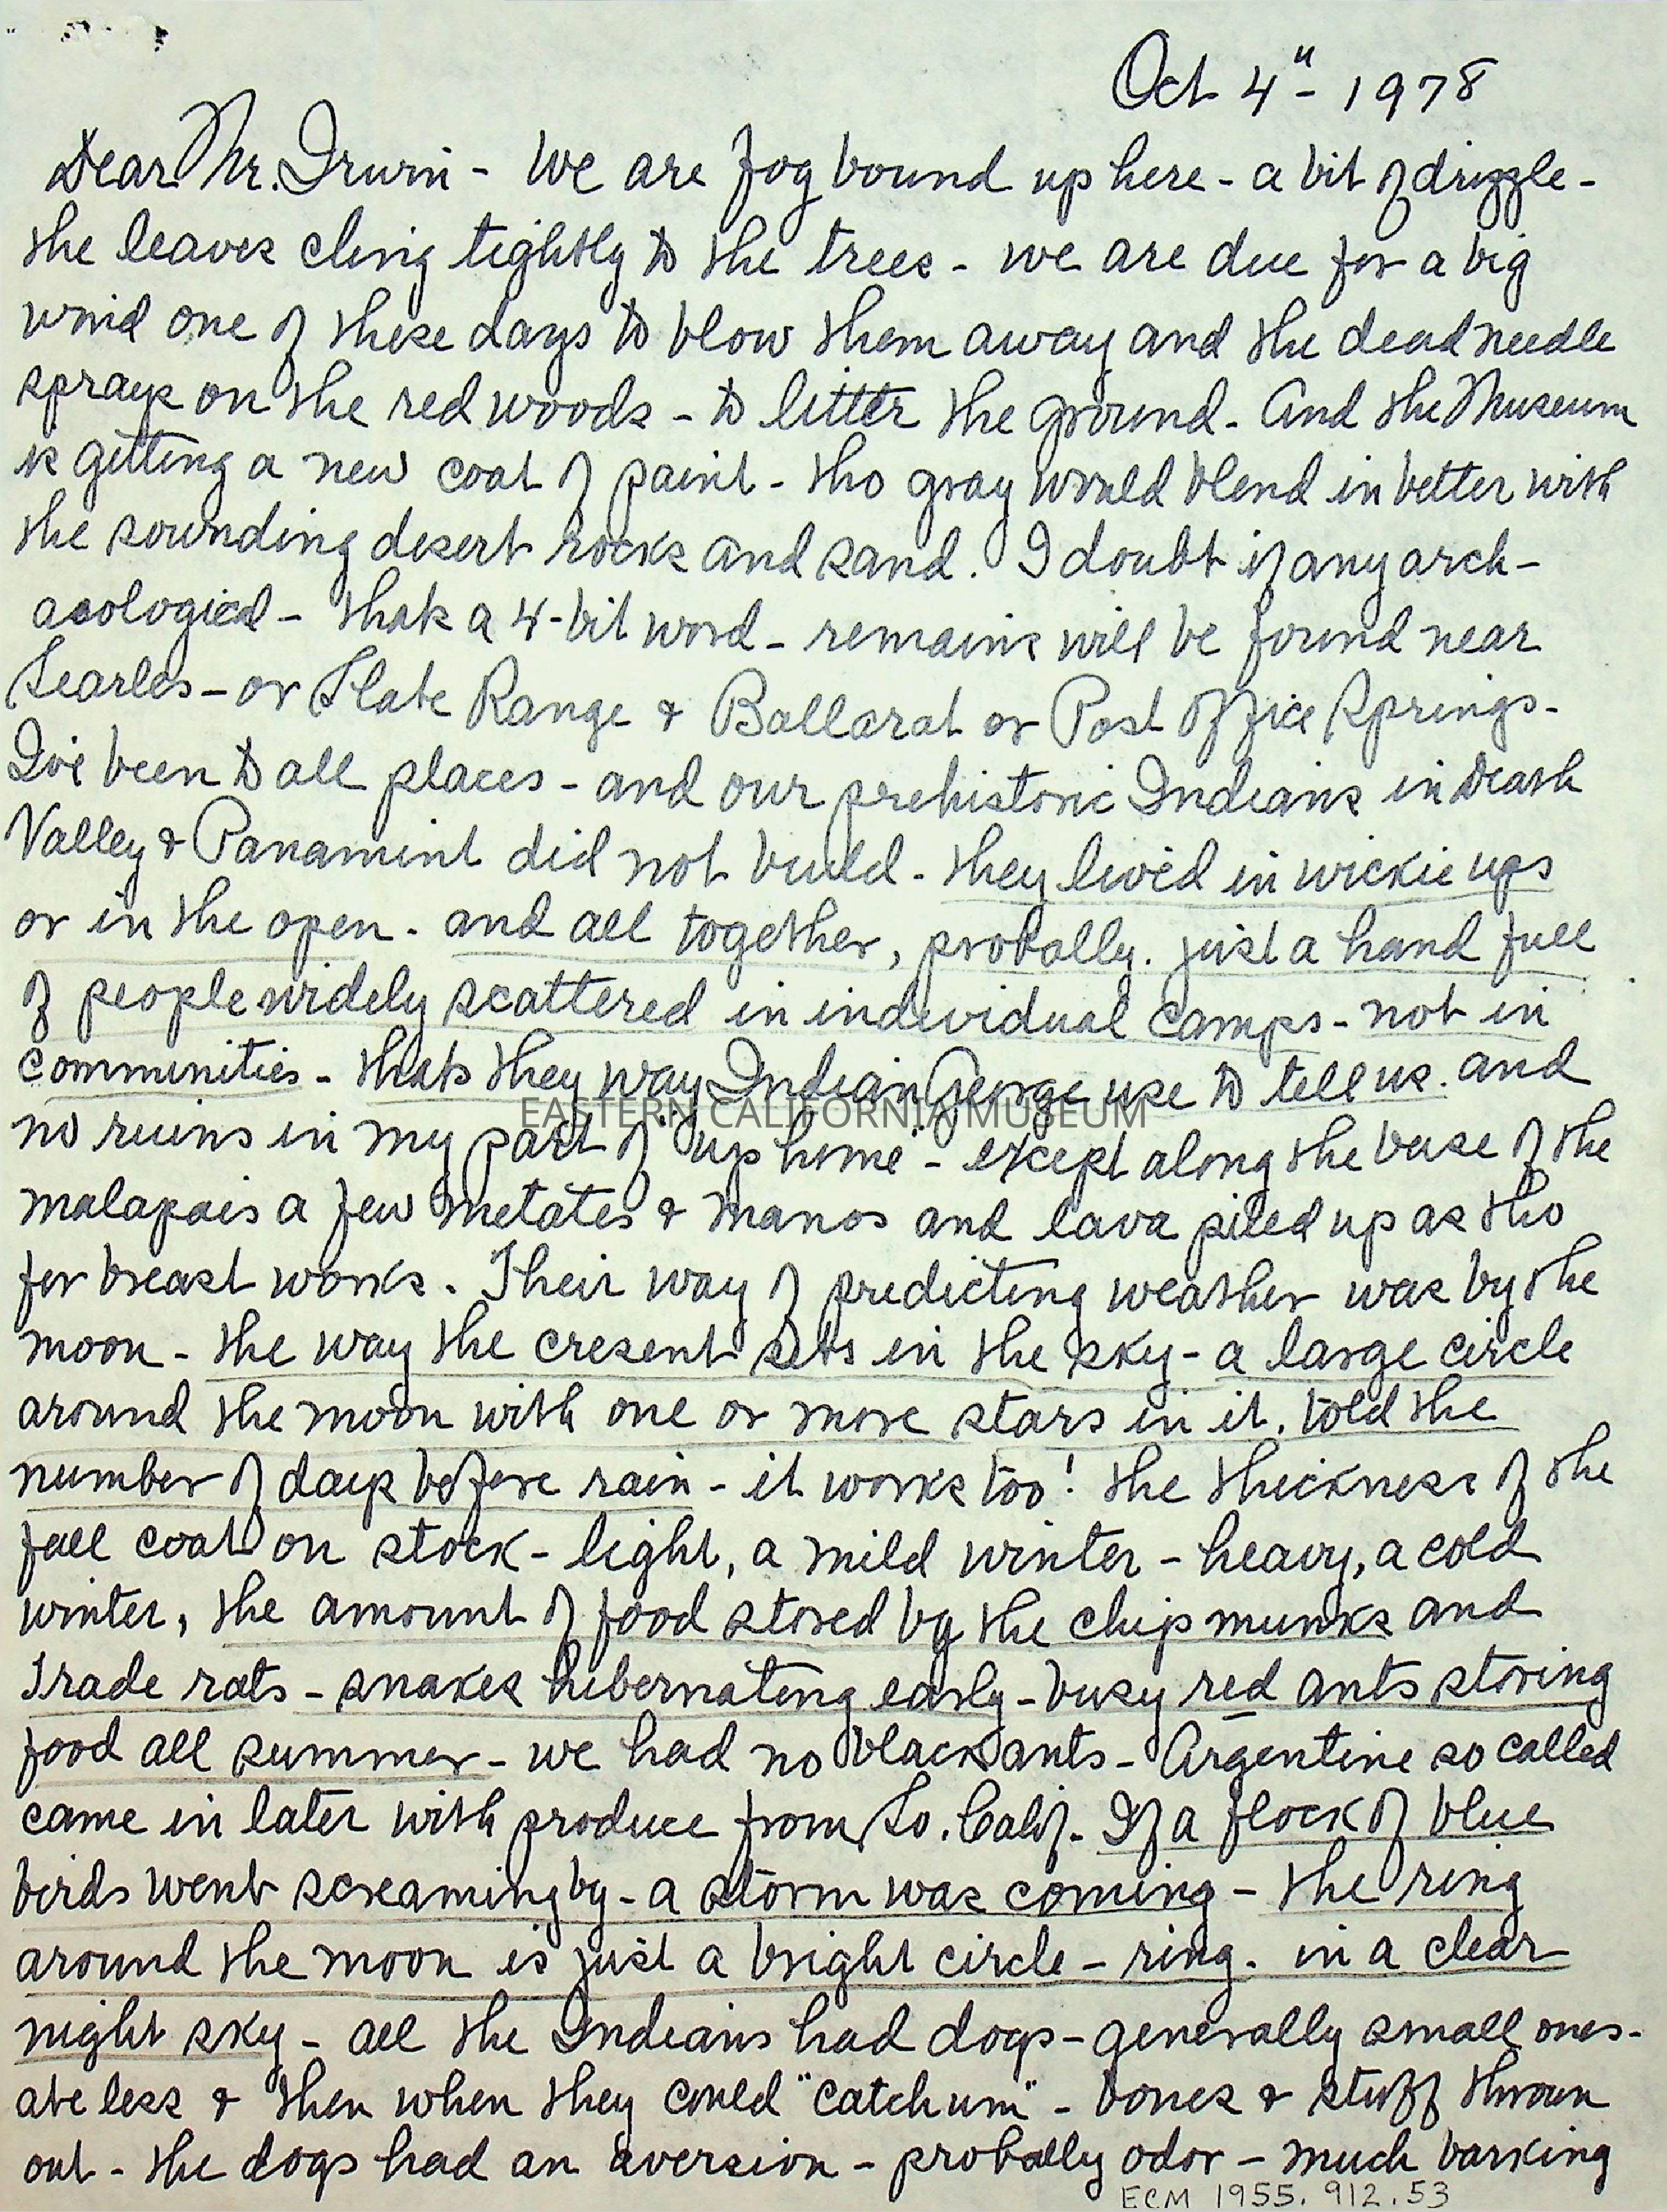 Oct 4" - 1978
Dear Mr. Irwin - We are fog bound up here - a bit of drizzle -
the leaves cling tightly to the trees - we are due for a big
wind one of these days to blow them away and the dead needle
sprays on the red woods - to litter the ground. And the Museum
is getting a new coat of paint - tho gray would blend in better with
the sounding desert rocks and sand. I doubt if any arch-
aeological - thats a 4-bit word - remains will be found near
Searles - or Slate Range & Ballarat or Post Office Springs -
I've been to all places - and our prehistoric Indians in Death
Valley & Panamint did not build - they lived in wickie ups
or in the open - and all together, probally. just a hand full
of people widely scattered in individual camps - not in
communities - thats they way Indian George use to tell us. and
no ruins in my part of "up home" - except along the base of the
malapais a few metates & manos and lava piled up as tho
for breast works. Their way of predicting weather was by the
moon - the way the cresent sets in the sky - a large circle
around the moon with one or more stars in it, told the
number of days before rain - it works too! the thickness of the
fall coat on stock - light, a mild winter - heavy, a cold
winter, the amount of food stored by the chipmunks and
Trade rats - snakes hibernating early - busy red ants storing
food all summer - we had no black ants - Argentine so called
came in later with produce from So. Calif. If a flock of blue
birds went screaming by - a storm was coming - the ring
around the moon is just a bright circle - ring. in a clear
night sky - all the Indians had dogs - generally small ones -
ate less & then when they could "catchum" - bones & stuff thrown
out - the dogs had an aversion - probally odor - much barking
EASTERN CALIFORNIA MUSEUM
ECM 1955.912.53